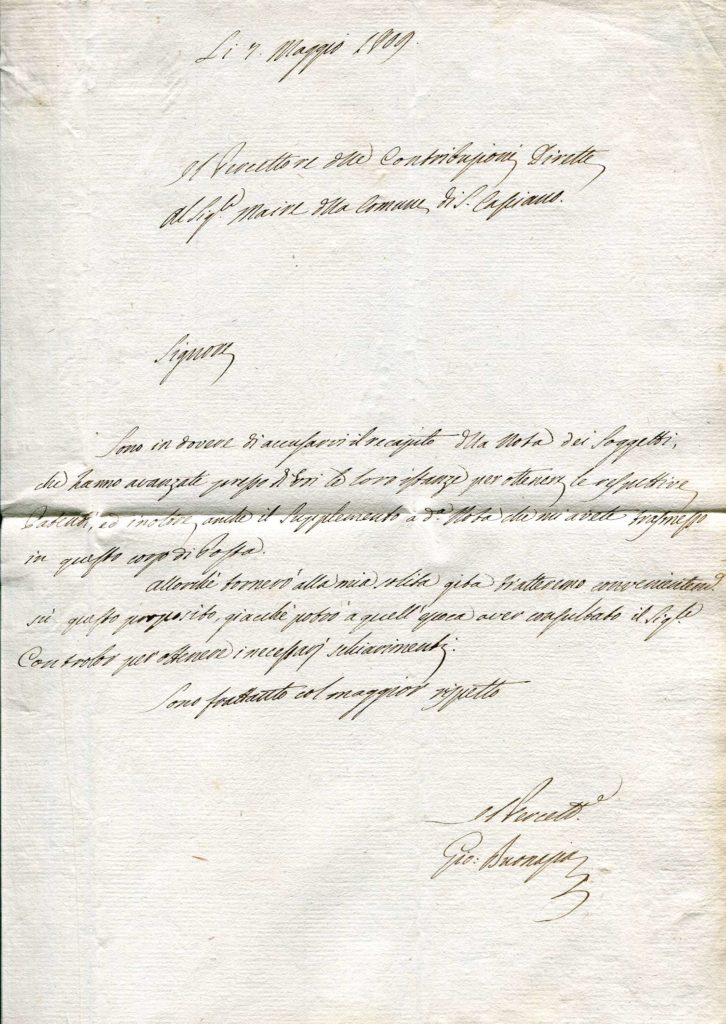 Li 7. Maggio 1809.
Il Percettore delle Contribuzioni Dirette
Al Sig.re Maire della Comune di S. Casciano.
Signore
Sono in dovere di accusarvi il recapito della Nota dei Soggetti,
che hanno avanzate presso di Voi le loro istanze per ottenere le respettive
Patenti, ed inoltre anche il Supplemento a d.a Nota che mi avete trasmesso
in questo corso di Posta.
Allorché tornerò alla mia solita gita tratteremo convenientem.e
sù questo proposito, giacché potrò a quell'epoca aver consultato il Sig.re
Controlor per ottenere i necessarj schiarimenti.
Sono frattanto col maggior rispetto
Il Percett.e
Gio: